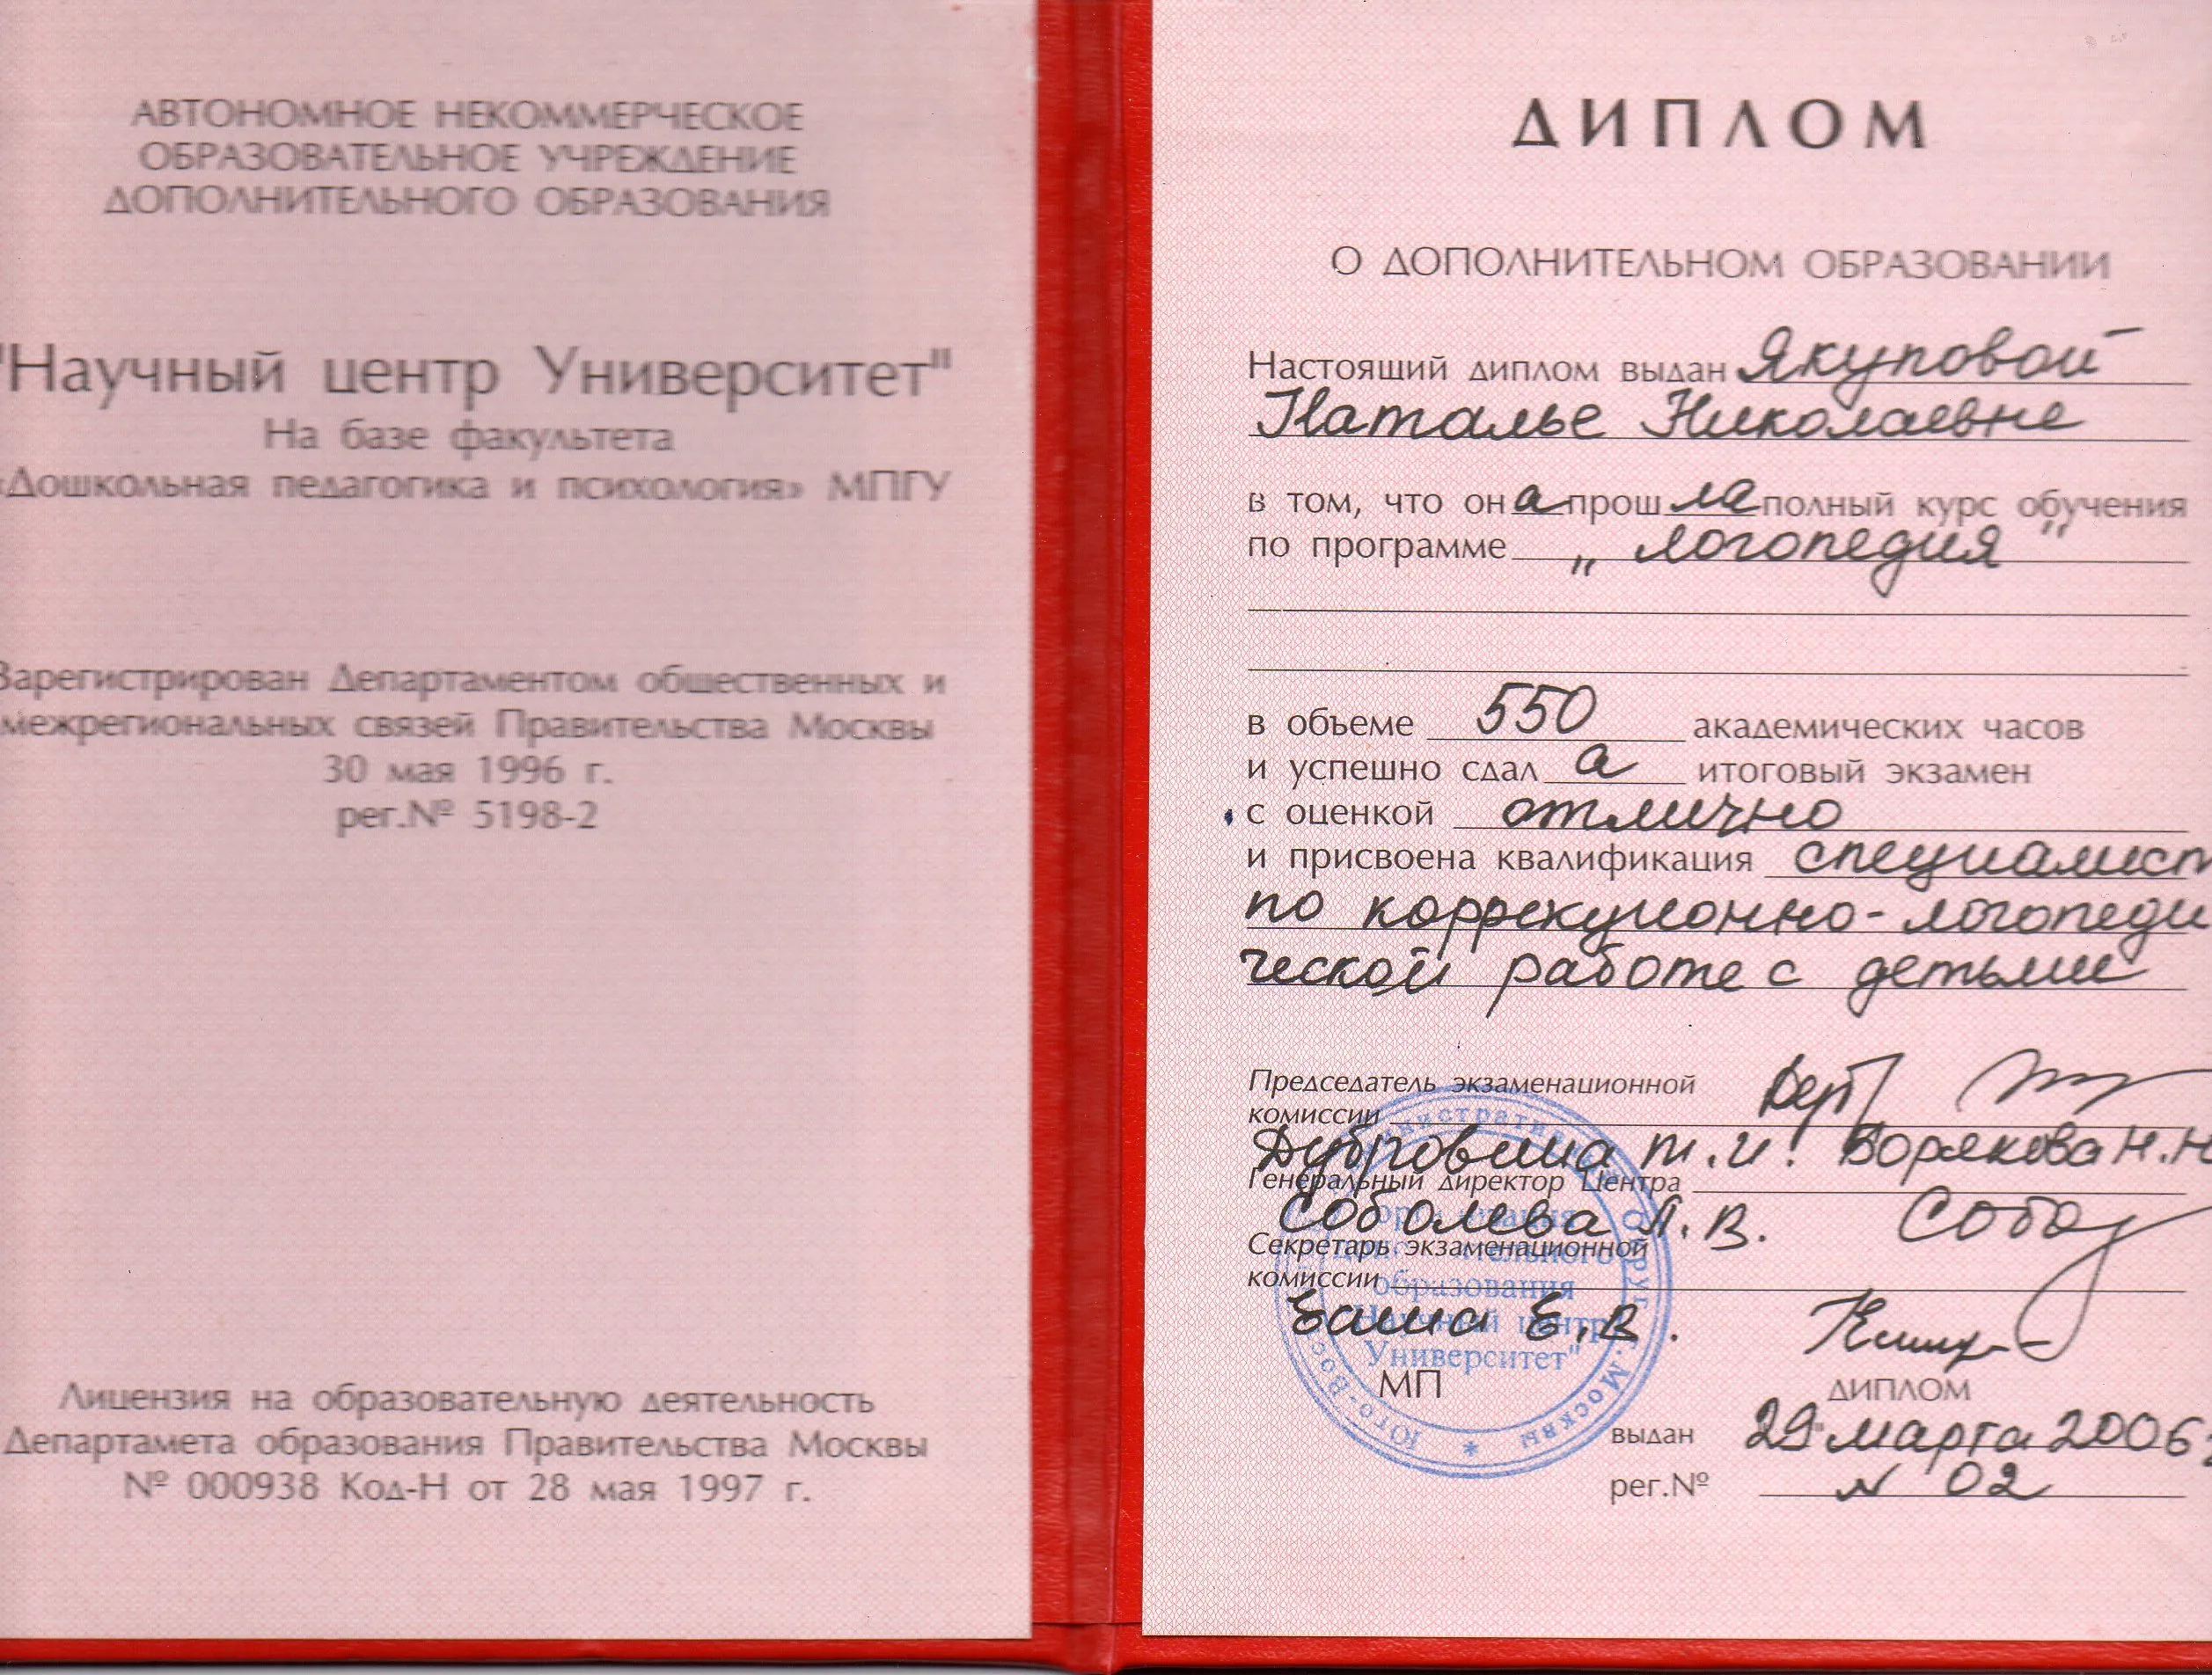 АВТОНОМНОЕ НЕКОММЕРЧЕСКОЕ
ОБРАЗОВАТЕЛЬНОЕ УЧРЕЖДЕНИЕ
ДОПОЛНИТЕЛЬНОГО ОБРАЗОВАНИЯ
"Научный центр Университет"
На базе факультета
«Дошкольная педагогика и психология» МПГУ
Зарегистрирован Департаментом общественных и
межрегиональных связей Правительства Москвы
30 мая 1996 г.
рег.№ 5198-2
Лицензия на образовательную деятельность
Департамета образования Правительства Москвы
№ 000938 Код-Н от 28 мая 1997 г.
ДИПЛОМ
О ДОПОЛНИТЕЛЬНОМ ОБРАЗОВАНИИ
Настоящий диплом выдан Якуповой
Наталье Николаевне
в том, что она прошла полный курс обучения
по программе „логопедия"
в объеме 550 академических часов
и успешно сдала итоговый экзамен
с оценкой отлично
и присвоена квалификация специалист
по коррекционно-логопеди
ческой работе с детьми
Председатель экзаменационной
комиссии
Дубровина Т.И. Борякова Н.Н
Генеральный директор Центра
Соболева Л.В.
Секретарь экзаменационной
комиссии
Е.В.
образования
Научный центр
Университет"
МП
г. Москвы
ДИПЛОМ
выдан 29 марта 2006г
рег.№ N 02